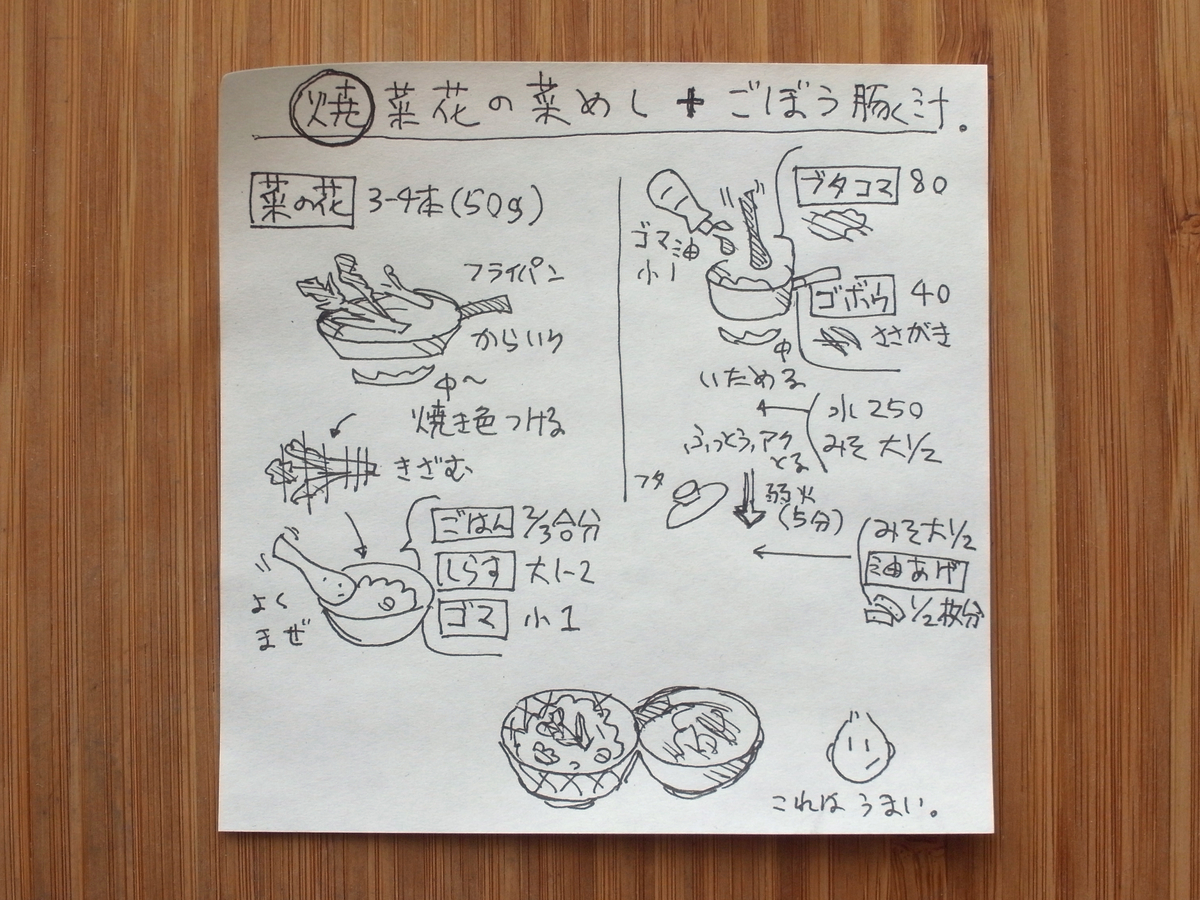 焼 菜花の菜めし + ごぼう豚汁。
菜の花 3-4本(50g)
フライパン
からいり
中〜
焼き色つける
きざむ
ごはん 2/3合分
しらす 大1-2
ゴマ 小1
よく
まぜ
ゴマ油
小1
ブタコマ 80
ゴボウ 40
ささがき
中
いためる
水 250
みそ 大1/2
ふっとう、アク
とる
フタ
弱火
(5分)
みそ大1/2
油あげ
1/2枚分
これは うまい。